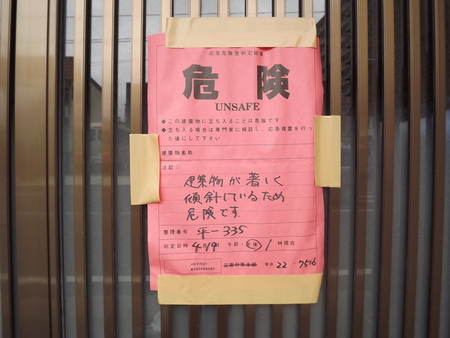 応急危険度判定結果
危険
UNSAFE
◆この建築物に立ち入ることは危険です
◆立ち入る場合は専門家に相談し、応急措置を行っ
た後にして下さい
建築物名称
注記:
建築物が著しく
傾斜しているため
危険です.
整理番号 平-335
判定日時 4/19 午前・午後 1 時現在
災害対策本部 電話 22-7516